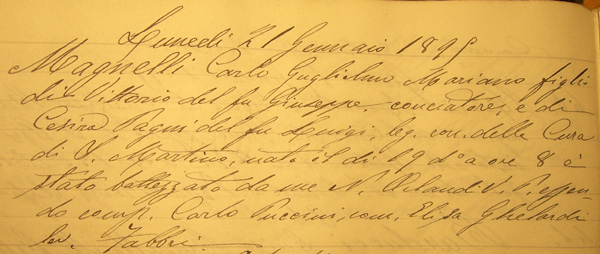 Lunedì 21 Gennaio 1895
Magnelli Carlo Guglielmo Mariano figlio
di Vittorio del fu Giuseppe, conciatore, e di
Cesira Pagni del fu Luigi, leg. con. della Cura
di S. Martino, nato il dì 19 do a ore 8 è
stato battezzato da me N. Orlandi V. P. essen-
do comp. Carlo Puccini, com. Elisa Ghelardi
lev. Fabbri.